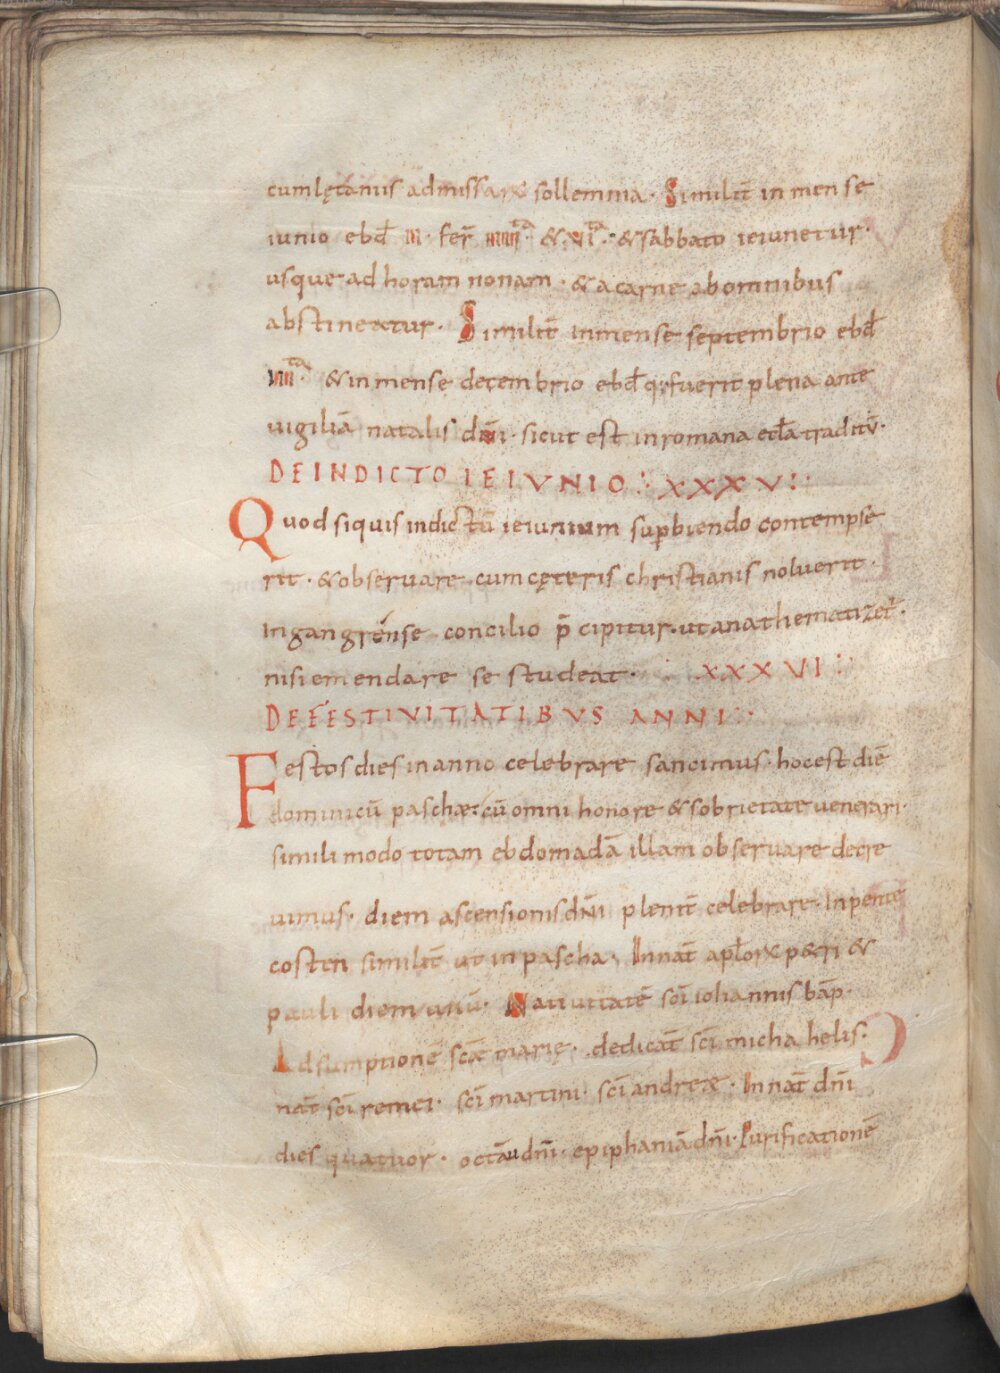 cum lętanıis ad missarꝝ sollemnia. Similit̄ in mense
iunio ebd̄ II. fer̄ IIII.ta & VI.ta & sabbato ieiunetur.
usque ad horam nonam. & a carne ab omnibus
abstineatur. Similit̄ in mense septembrio ebd̄
IIII.ta & in mense decembrio ebd̄ q; fuerit plena ante
uigiliā natalis dn̄i. sicut est in romana eccl̄a traditū.
DE INDICTO IEIUNIO: XXXV:
Quod si quis indictū ieiunium sup̄biendo contempse
rit. & obseruare cum cęteris christianis noluerit.
In gangrense concilio p̄cipitur. ut anathematizet̄.
nisi emendare se studeat. XXXVI:
DE FESTIVITATIBVS ANNI:
Festos dies in anno celebrare sancimus. hoc est diē
dominicū paschæ: cū omni honore & sobrietate uenerari.
simili modo totam ebdomadā illam obseruare decre
uimus. diem ascensionis dn̄i plenit̄ celebrare. In pente
costen similit̄ ut in pascha. In nat̄ apl̄orꝝ p&ri &
pauli diem unū. Natiuitatē sc̄i iohannis bāp.
Adsumptionē sc̄ę marię. dedicat̄ sc̄i michahelis.
nat̄ sc̄i remei. sc̄i martini. sc̄i andreæ. In nat̄ dn̄i
dies quatuor. octāu dn̄i. epiphaniā dn̄i. Purificationē